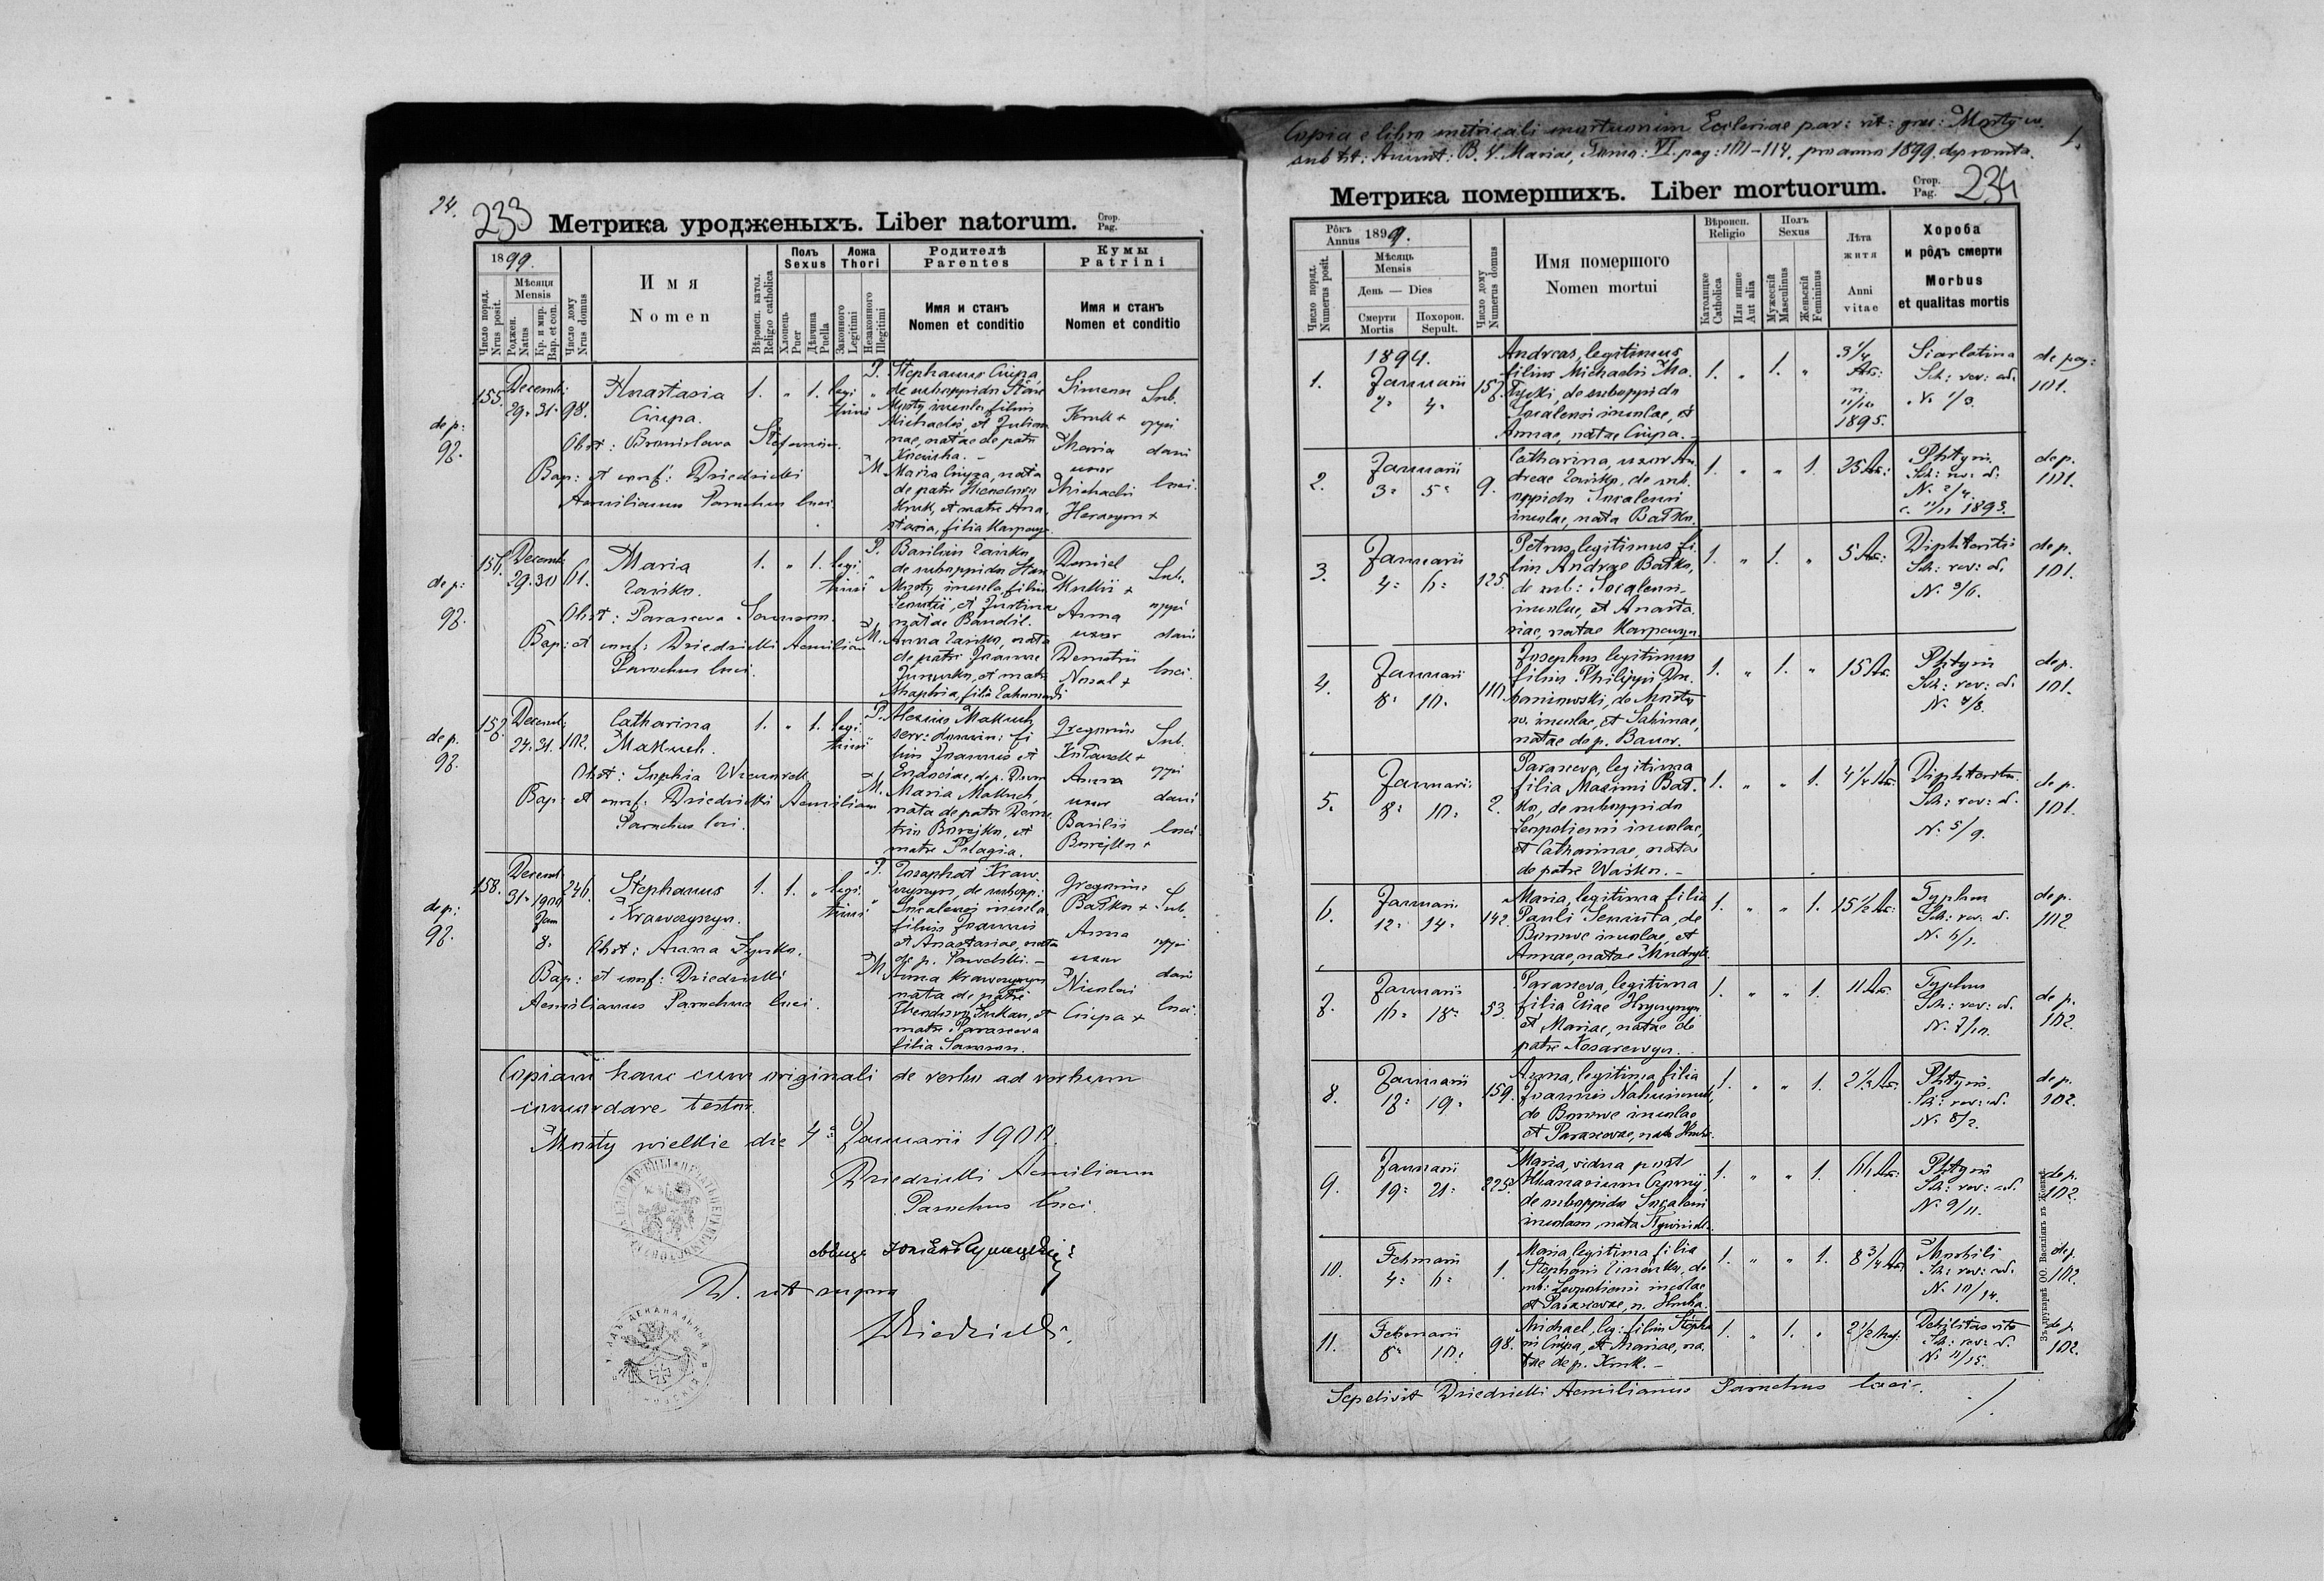 24.
233 Метрика уродженыхъ. Liber natorum. Стор. Pag.
1899.
Число поряд. Nrus posit.
Мѣсяця Mensis
Роджен. Natus
Кр. и мир. Bap. et con.
Число дому Nrus domus
Имя
Nomen
Вѣроисп. катол. Religio catholica
Полъ Sexus
Хлопець Puer
Дѣвчина Puella
Ложа Thori
Законного Legitimi
Незаконного Illegitimi
Родителѣ
Parentes
Имя и станъ
Nomen et conditio
Кумы
Patrini
Имя и станъ
Nomen et conditio
de p: 97.
155. Decemb: 29. 31. 98.
Anastasia
Ciupa.
1. „ 1. legi timi „
Obst: Bronislava Stefanów.
Bap: et conf: Dziedzicki
Aemilianus Parochus loci.
P. Stephanus Ciupa,
de suboppido Stare
Mosty incola, filius
Michaelis, et Julian
nae, natae de patre
M. Maria Ciupa, nata
de patre Theodoro
Kmk, et matre Ana
stasia, filia Karpowycz
Simeon
Kmk +
Maria
uxor
Michaelis
Harasym +
Sub. oppi dani loci.
de p: 97.
156. Decemb: 29. 30 61.
Maria
Zaińko.
1. „ 1. legi timi „
Obst: Parasceva
Bap: et conf: Dziedzicki Aemilian
Parochus loci.
P. Basilius Zaińko
de suboppido Stare
Mosty incola, filius
et Justina
natae Bandit.
M. Anna Zaińko, nata
de patre Joanne
et matre
Agaphia, filia
Daniel
+
Anna
uxor
Demetrii
Nosal +
Sub. oppi dani loci.
de p. 97.
157. Decemb: 24. 31. 102.
Catharina
Makuch.
1. „ 1. legi timi „
Obst: Sophia
Bap: et conf: Dziedzicki Aemilian
Parochus loci.
P. Alexius Makuch
serv: domin: fi
lius Joannis et
Eudociae, de p.
M. Maria Makuch
nata de patre Deme
trio Borejko, et
matre Pelagia.
Gregorius
+
Anna
uxor
Basilii
Borejko +
Sub. oppi dani loci.
de p: 97.
158. Decemb: 31. 1900 Jan 8. 246.
Stephanus
Krawczyszyn.
1. 1. „ legi. timi „
Obst: Anna
Bap: et conf: Dziedzicki
Aemilianus Parochus loci.
P. Josaphat Kraw-
czyszyn, de subopp:
Socalensi incola
filius Joannis
et Anastasiae, nata
de p. Sawelski. —
M. Anna Krawczyszyn
nata de patre
Theodoro Fukas, et
matre Parasceva
filia
Gregorius
Batko +
Anna
uxor
Nicolai
Ciupa +
Sub. oppi dani loci.
Copiam hanc cum originali de verbo ad verbum
concordare testor.
Mosty wielkie die 4a Januarii 1900.
Dziedzicki Aemilianus
Parochus loci.
D. ut supra
Dziedzicki.
Copia e libro metricali mortuorum Ecclesiae par: rit: graec: Mosty w. 1.
sub tit: Annunt: B. V. Mariae, Tomo: VI. pag: 101-114. pro anno 1899. deprompta.
Метрика помершихъ. Liber mortuorum. Стор. Pag. 234
Рôкъ Annus 1899.
Число поряд. Numerus posit.
Мѣсяць Mensis
День — Dies
Смерти Mortis
Похорон. Sepult.
Число дому Numerus domus
Имя помершого
Nomen mortui
Вѣроисп. Religio
Католицке Catholica
Или инше Aut alia
Полъ Sexus
Мужескій Masculinus
Женьскій Femininus
Лѣта житя
Anni vitae
Хороба
и рôдъ смерти
Morbus
et qualitas mortis
1. 1899. Januarii 2. 4. 157.
Andreas, legitimus
filius Michaelis Ma.
de suboppido
Socalensi incolae, et
Annae, natae Ciupa. —
1. „ 1. „ 3 1/4 An: n. 11/10 1895.
Scarlatina
Sch: rev: cad.
N. 1/3.
de pag: 101.
2. Januarii 3. 5. 9.
Catharina, uxor An
dreae Zaińko, de sub.
oppido Socalensi
incolae, nata Batko.
1. „ „ 1. 25 An:
Phtysis.
Sch: rev: cad.
N. 2/4.
c. 11/11 1893.
de p. 101.
3. Januarii 4. 6. 125.
Petrus, legitimus fi.
lius Andreae Batko,
de sub: Socalensi
incolae, et Anasta.
siae, natae Karpowycz.
1. „ 1. „ 5 An:
Diphteritis
Sch: rev: cad.
N. 3/6.
de p. 101.
4. Januarii 8. 10. 110.
Josephus legitimus
filius Philippi
de Mosty
w. incolae, et Sabinae,
natae de p. Bauer.
1. „ 1. „ 15 An.
Phtysis
Sch: rev: cad.
N. 4/8.
de p. 101.
5. Januarii 8. 10. 2.
Parasceva, legitima
filia Maximi Bat.
ko, de suboppido
Leopoliensi incolae,
et Catharinae, natae
de patre Waśko. —
1. „ „ 1. 4 1/2 An:
Diphteritis.
Sch: rev: cad.
N. 5/9.
de p. 101.
6. Januarii 12. 14. 142.
Maria, legitima filia
Pauli Semiuta, de
incolae, et
Annae, natae
1. „ „ 1. 15 1/2 An:
Typhus
Sch: rev: cad.
N. 6/1.
de p. 102.
7. Januarii 16. 18. 53.
Parasceva, legitima
filia Eliae Hrycyszyn
et Mariae, natae de
patre Kosarewycz.
1. „ „ 1. 11 An.
Typhus
Sch: rev: cad.
N. 7/10.
de p. 102.
8. Januarii 17. 19. 159.
Anna, legitima filia
Joannis
de incolae
et Parascevae, nata
1. „ „ 1. 2 1/2 An.
Phtysis.
Sch: rev: cad.
N. 8/2.
de p. 102.
9. Januarii 19. 21. 225.
Maria, vidua post
Athanasium
de suboppido Socalensi
incolam, nata
1. „ „ 1. 66 An:
Phtysis
Sch: rev: cad.
N. 9/11.
de p. 102.
10. Februarii 4. 6. 1.
Maria, legitima filia
Stephani de
sub: Leopoliensi incolae
et Parascevae, n.
1. „ „ 1. 8 3/4 An
Morbili
Sch: rev: cad.
N. 10/14.
de p. 102.
11. Februarii 8. 10. 98.
Michael, leg: filius Stepha
ni Ciupa, et Mariae, na.
tae de p. Kmk. —
1. „ 1. „ 2 1/2
Debilitas vitae
Sch: rev: cad.
N. 11/15.
de p. 102.
Sepelivit Dziedzicki Aemilianus Parochus loci.
Зъ друкарнѣ ОО. Василіянъ въ Жовквѣ.